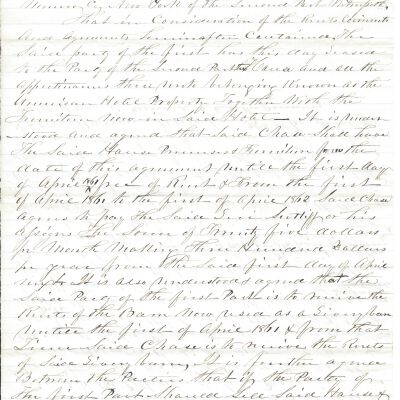 of the Second Part Witnesseth,
That in Consideration of the Rents Covenants
And Agreements hereinafter Contained, The
Said party of the first has this day leased
to the Party of the Second Part House and all the
appertinances there unto belonging Known as the
American Hotel Property Together With the
Furniture Now in Said Hotel — It is under
stood and agreed that Said Chase Shall have
The Said House Premises & Furniture from the
date of this agreement until the first day
of April 1861 free of Rent & From the first
of April 1861 to the first of April 1862 Said Chase
Agrees to pay the Said Levi Sutliff or his
Assigns The Some of Twenty five dollars
per Month Making three Hundred Dollars
per year from the Said first day of April
It is also understood & agreed that the
Said Party of the first Part is to receive the
Rents of the Barn Now used as a Livery barn
until the first of April 1861 & from that
Time Said Chase is to receive the Rents
of Said Livery barn, It is further agreed
Between the Parties that if the Party of
the first Part Should Sell Said House &